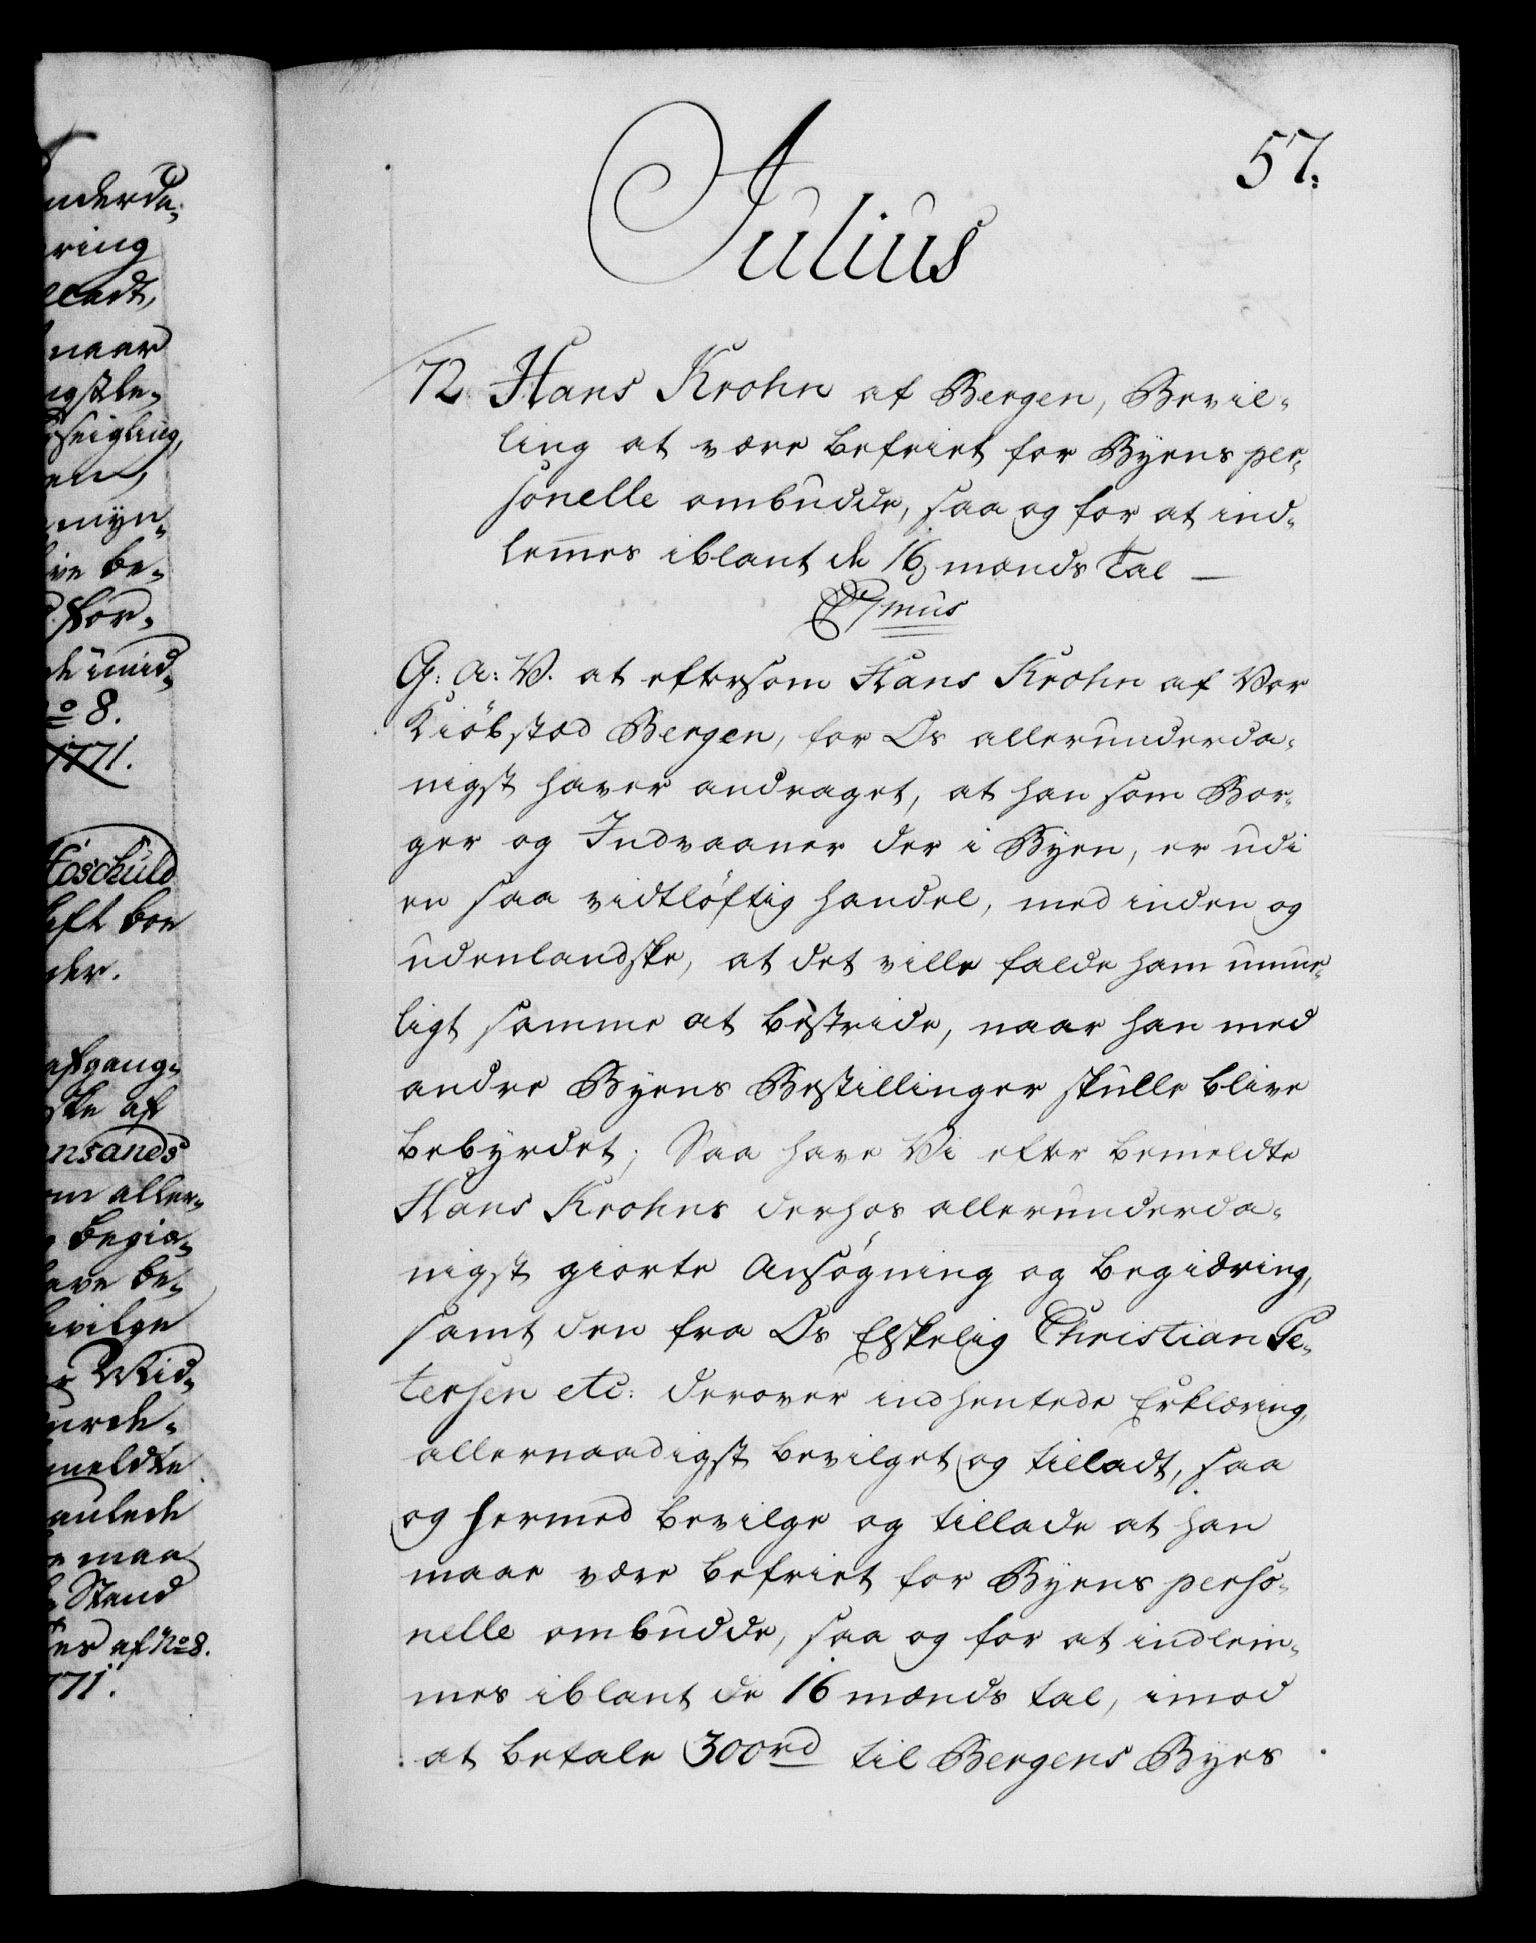 57.
Julius
72. Hans Krohn af Bergen, Bevil-
ling at være befriet for Byens per-
sonelle ombudde, saa og for at ind-
lem̄es iblant de 16 mænds Tal —
C7mus
G: A: V. at eftersom Hans Krohn af Vor
Kiöbstæd Bergen, for Os allerunderda-
nigst haver andraget, at han som Bor-
ger og Indvaaner der i Byen, er udi
en saa vidtløftig handel, med inden og
udenlandske, at det ville falde ham umue-
ligt samme at bestride, naar han med
andre Byens Bestillinger skulle blive
bebyrdet; Saa have Vi efter bemeldte
Hans Krohns derhos allerunderda-
nigst giorte Ansøgning og begiæring,
samt den fra Os Elskelig Christian Pe-
tersen etc: derover indhentede Erklæring,
allernaadigst bevilget og tilladt, saa
og hermed bevilge og tillade at han
maae være befriet for Byens perso-
nelle ombudde, saa og for at indlem-
mes iblant de 16 mænds tal, imod
at betale 300rd til Bergens Byes
nderda-
ring
naar
seigling,
myn-
ve be-
for-
de imid-
No 8.
1771.
Hoschuld
der.
afgang-
ske af
nsands
om aller-
begiæ-
have be-
evilge
meldte
maa
Stand
es af No 8.
771.